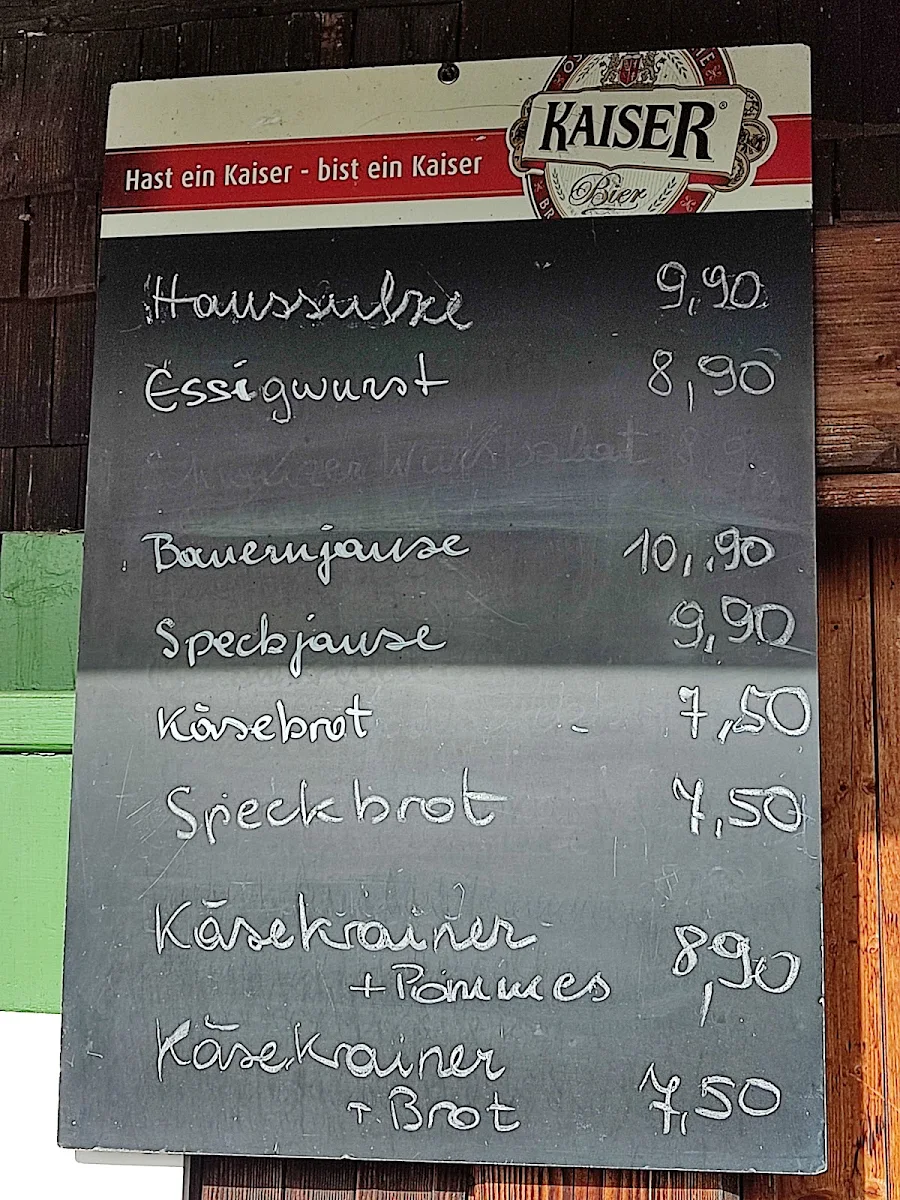 KAISER®
Bier
Hast ein Kaiser - bist ein Kaiser
Haussulze 9,90
Essigwurst 8,90
Bauernjause 10,90
Speckjause 9,90
Käsebrot - 7,50
Speckbrot 7,50
Käsekrainer
+ Pommes 8,90
Käsekrainer
+ Brot 7,50